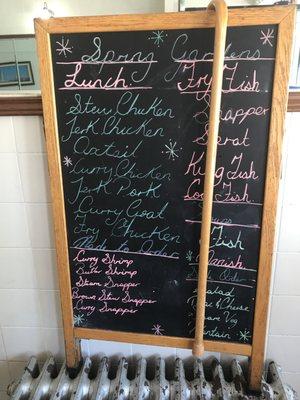 Spring Gardens
Lunch
Stew Chicken
Jerk Chicken
Oxtail
Curry Chicken
Jerk Pork
Curry Goat
Fry Chicken
Made to Order
Curry Shrimp
Butter Shrimp
Steam Snapper
Brown Stew Snapper
Curry Snapper
Fry Fish
Snapper
Sprat
King Fish
Fish
Salad
Mac & Cheese
Steam Veg
Plantain